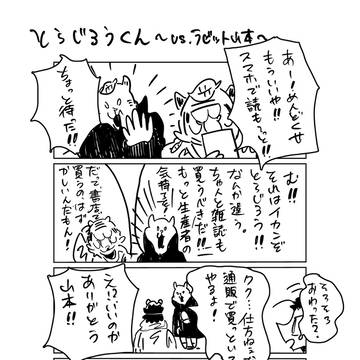 とらじろうくん〜VS.ラビット山本〜
あー!めんどくせ
もういいや!!
スマホで読もうっと!!
ちょっと待った!!
む!!
それはイカンぞ
とらじろう!!
なんか違う。
ちゃんと雑誌も
買うべきだ!!
もっと生産者の
気持ちを!!
だって書店で
買うのはず
かしいんだもん!!
そろそろ
おわった?
クク…仕方ねぇ
通販で買っといて
やるよ!
え?いいのか
ありがとう
山本!!